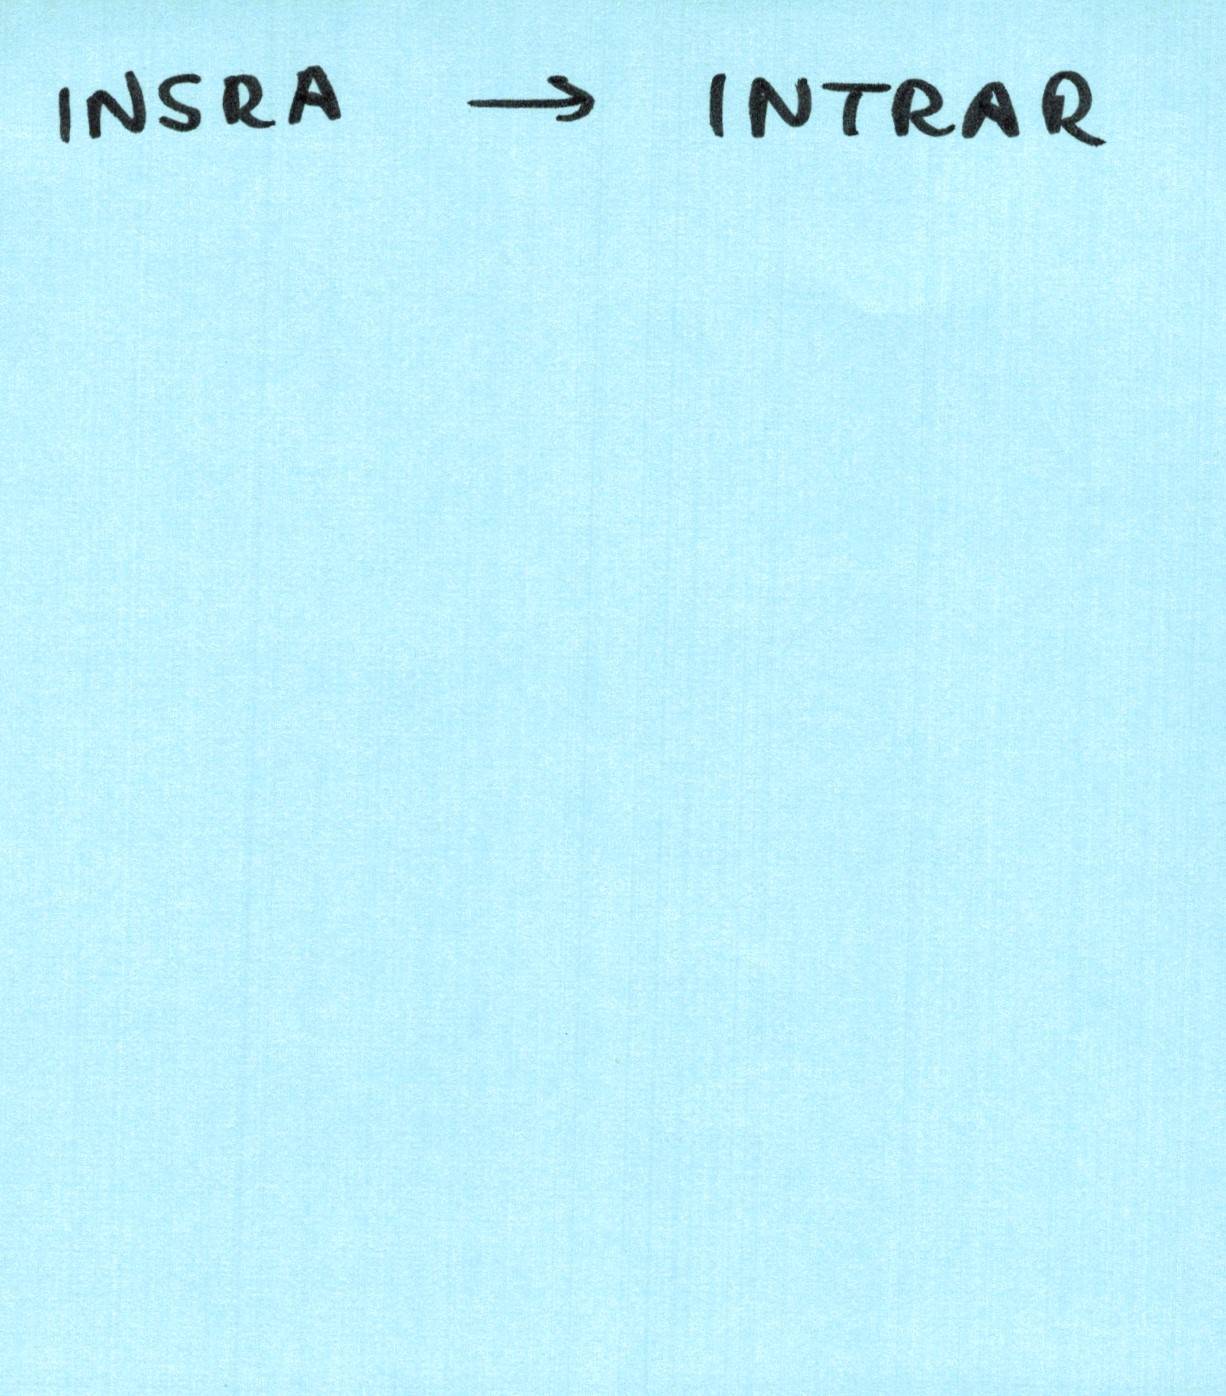 INSRA → INTRAR